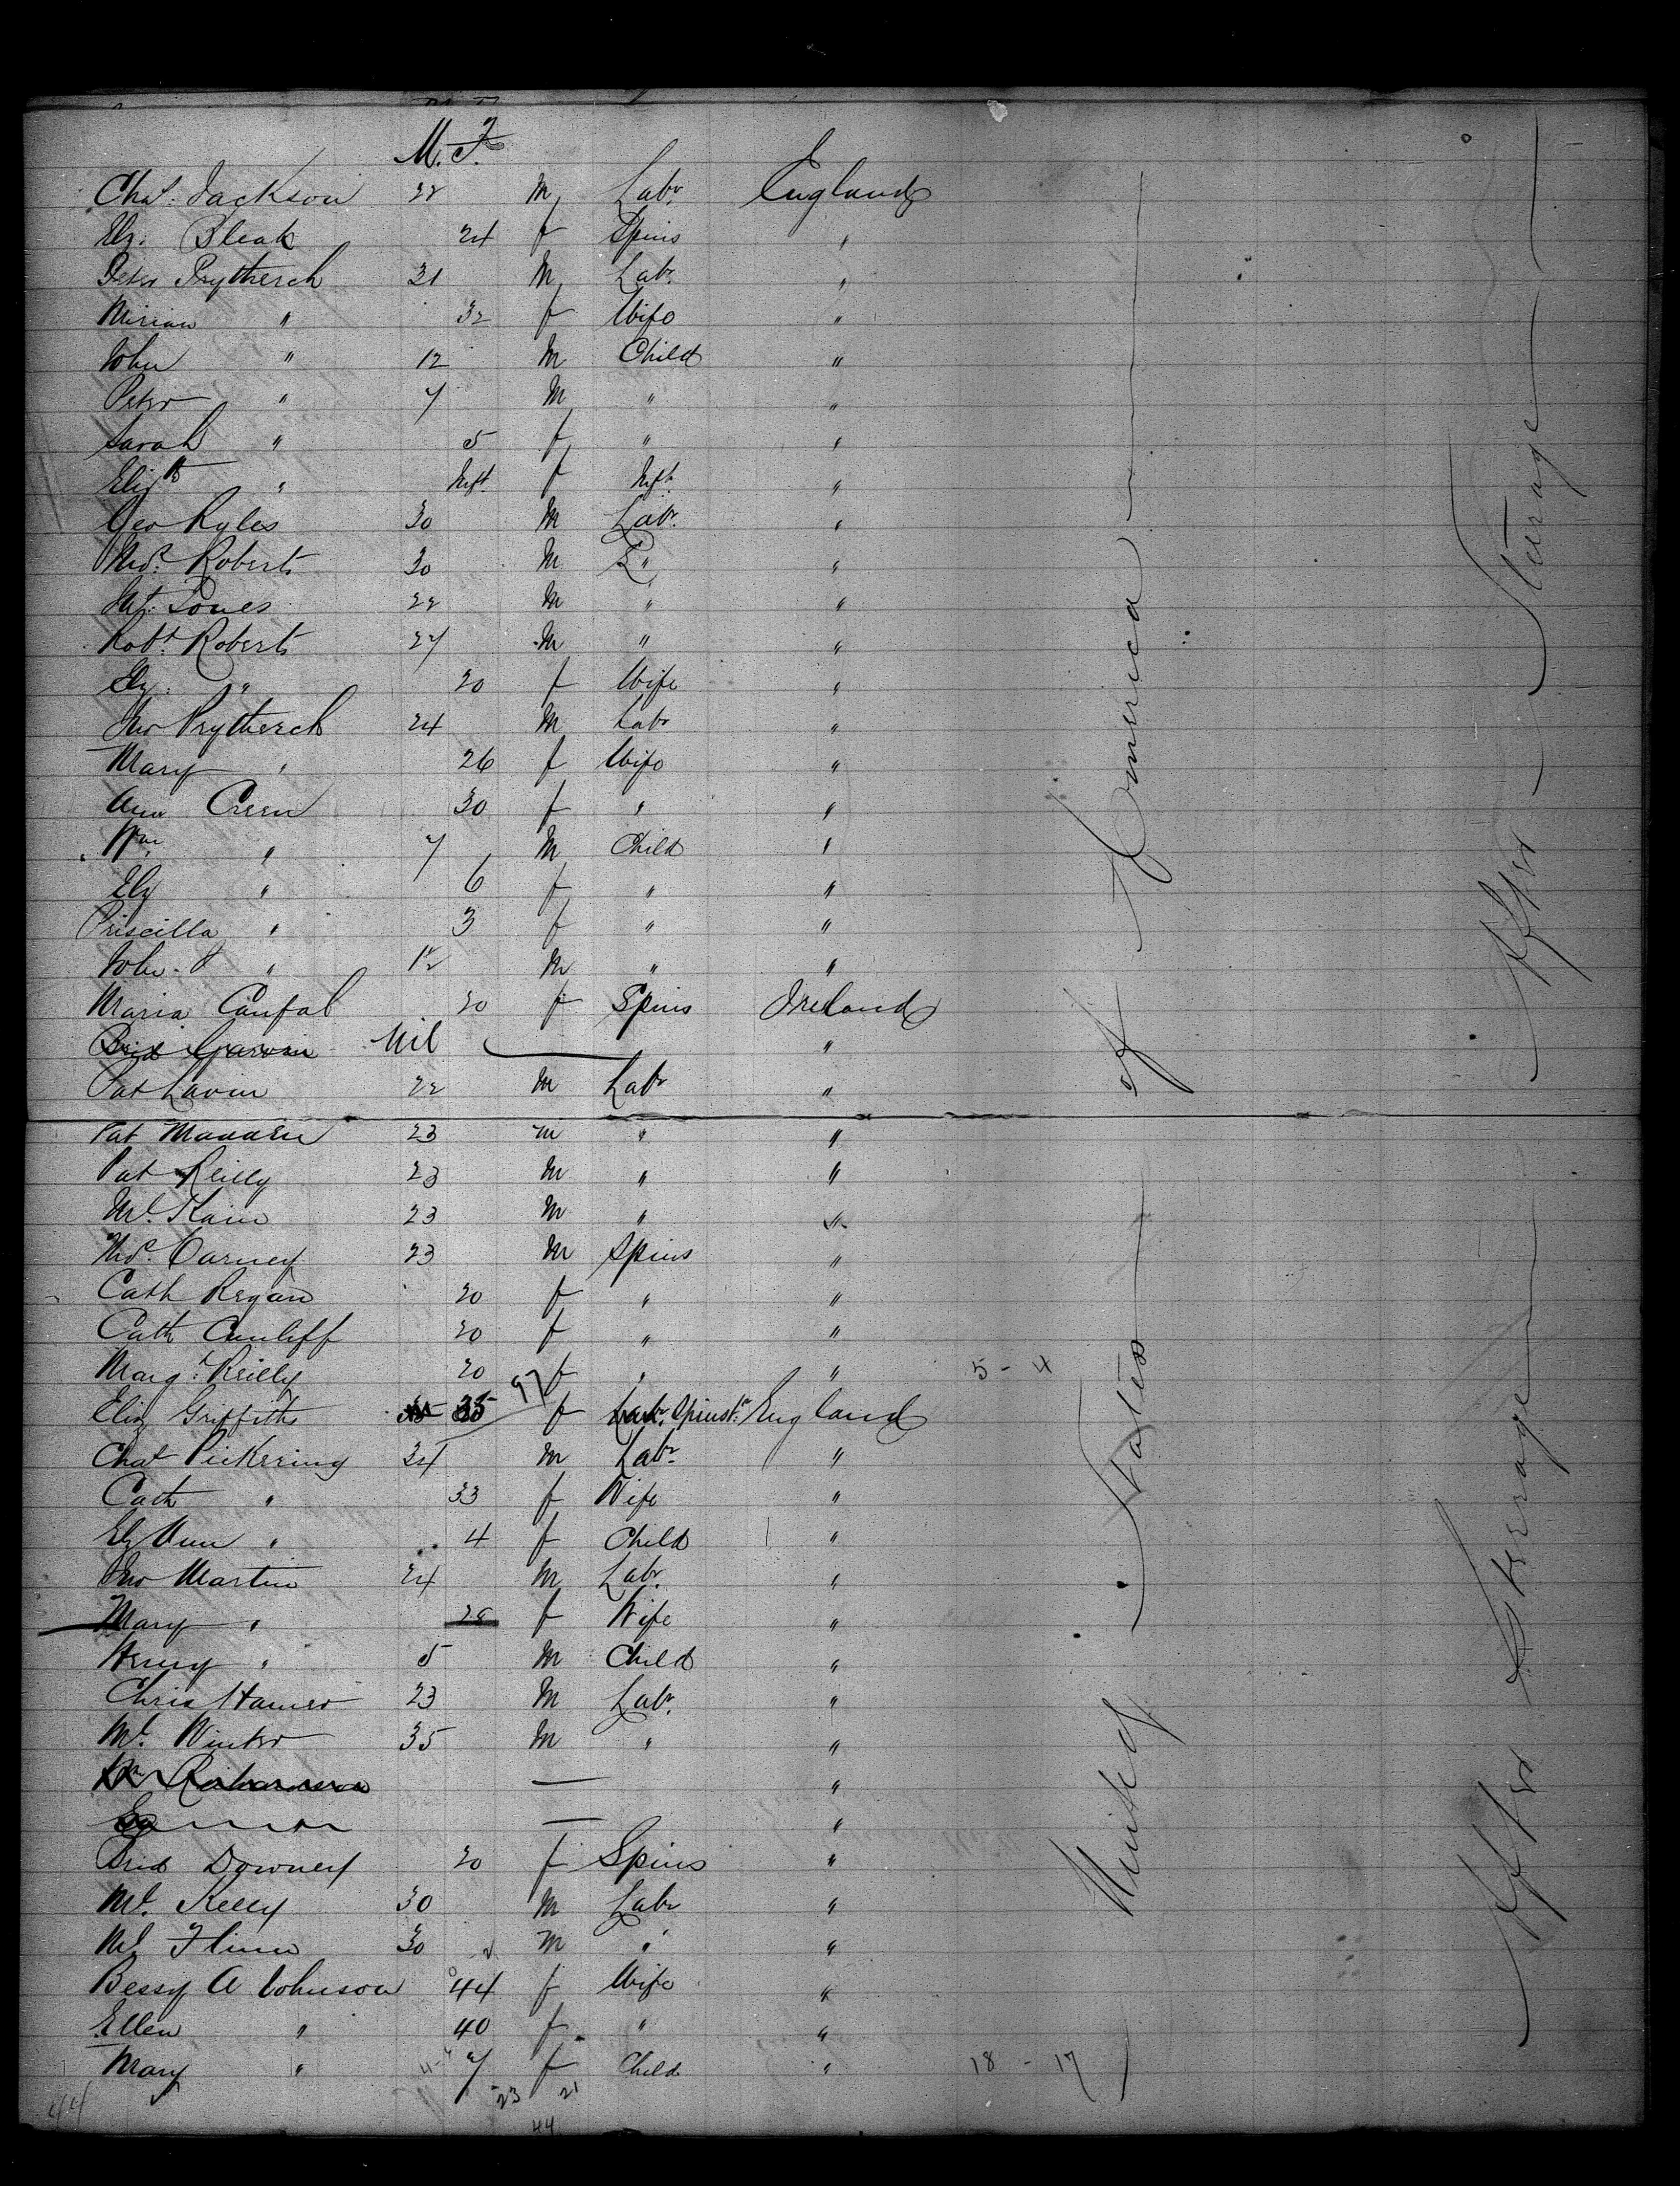 M. F.
Chas. Jackson 22 M Labr. England
Elz. Bleak 24 f Spins "
Peter Prytherch 31 M Labr. "
Miriam " 32 f Wife "
John " 12 M Child "
Peter " 7 M " "
Sarah " 5 f " "
Elizth " Inft. f Inft. "
Geo Ryles 30 M Labr. "
Thos. Roberts 30 M " "
Jones 22 M " "
Robt. Roberts 27 M " "
Elz. " 20 f Wife "
Jno Prytherch 24 M Labr "
Mary " 26 f Wife "
Ann Creen 30 f " "
Wm " 7 M Child "
Elz " 6 f " "
Priscilla " 3 f " "
John " M " "
Maria Canfal 20 f Spins Ireland
Brid Garvin Nil "
Pat Lavin 22 M Labr "
Pat Madden 23 M " "
Pat Reilly 23 M " "
Ml. Kain 23 M " "
Thos. Carney 23 M Spins "
Cath Regan 20 f " "
Cath Cunliff 20 f " "
Margt. Reilly 20 f " " 5 - 4
97
Eliz Griffiths 35 f Labr. Spinstr. England
Chas Pickering 34 M Labr. "
Cath " 33 f Wife "
Elz Ann " 4 f Child "
Jno Martin 24 M Labr. "
Mary " 28 f Wife "
Henry " 5 M Child "
Chris Hamer 23 M Labr. "
Ml. Winter 35 M " "
Wm Richardson — "
— "
Brid Downey 20 f Spins "
Ml. Kelly 30 M Labr "
Ml Flinn 30 M " "
Bessy A Johnson 44 f Wife "
Ellen " 40 f " "
Mary " 7 f Child " 18 - 17
23 21
44
44
United States of America
Aftr Sterage
Aftr Sterrage